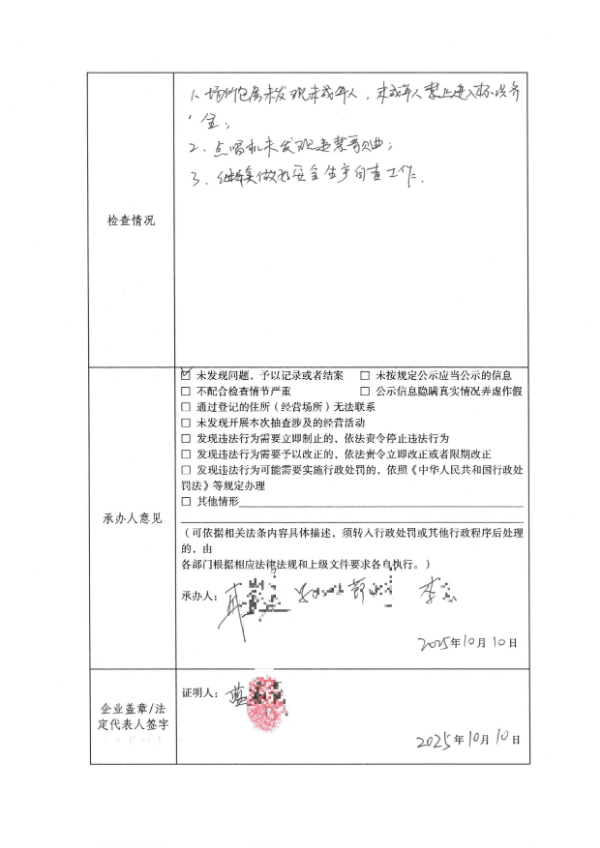 1、场所包房未发现未成年人，未成年人禁止进入标识齐
全；
2、点唱机未发现违禁歌曲；
3、继续做好安全生产自查工作。
检查情况
☑ 未发现问题，予以记录或者结案 □ 未按规定公示应当公示的信息
□ 不配合检查情节严重 □ 公示信息隐瞒真实情况弄虚作假
□ 通过登记的住所（经营场所）无法联系
□ 未发现开展本次抽查涉及的经营活动
□ 发现违法行为需要立即制止的，依法责令停止违法行为
□ 发现违法行为需要予以改正的，依法责令立即改正或者限期改正
□ 发现违法行为可能需要实施行政处罚的，依照《中华人民共和国行政处
罚法》等规定办理
□ 其他情形
承办人意见
（可依据相关法条内容具体描述，须转入行政处罚或其他行政程序后处理
的，由
各部门根据相应法律法规和上级文件要求各自执行。）
承办人： 李
2025年10月10日
企业盖章/法
定代表人签字
证明人：蓝
2025年10月10日